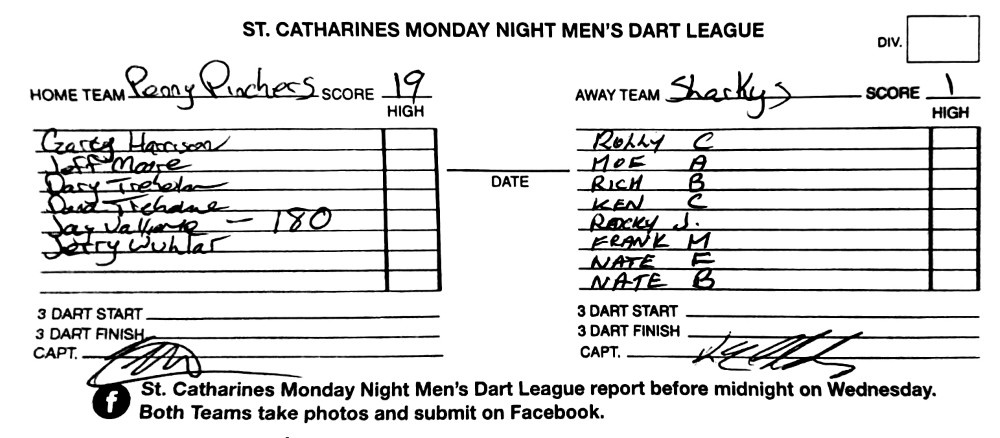 ST. CATHARINES MONDAY NIGHT MEN'S DART LEAGUE
DIV.
HOME TEAM Penny Pinchers SCORE 19
HIGH
Garey Harrison
Jeff Moore
Dary Treholm
Trehane
Jay Vallante - 180
Jerry Wuhlar
3 DART START
3 DART FINISH
CAPT.
DATE
AWAY TEAM Sharkys SCORE 1
HIGH
ROLLY C
MOE A
RICH B
KEN C
ROCKY J.
FRANK M
NATE F
NATE B
3 DART START
3 DART FINISH
CAPT.
f St. Catharines Monday Night Men's Dart League report before midnight on Wednesday.
Both Teams take photos and submit on Facebook.